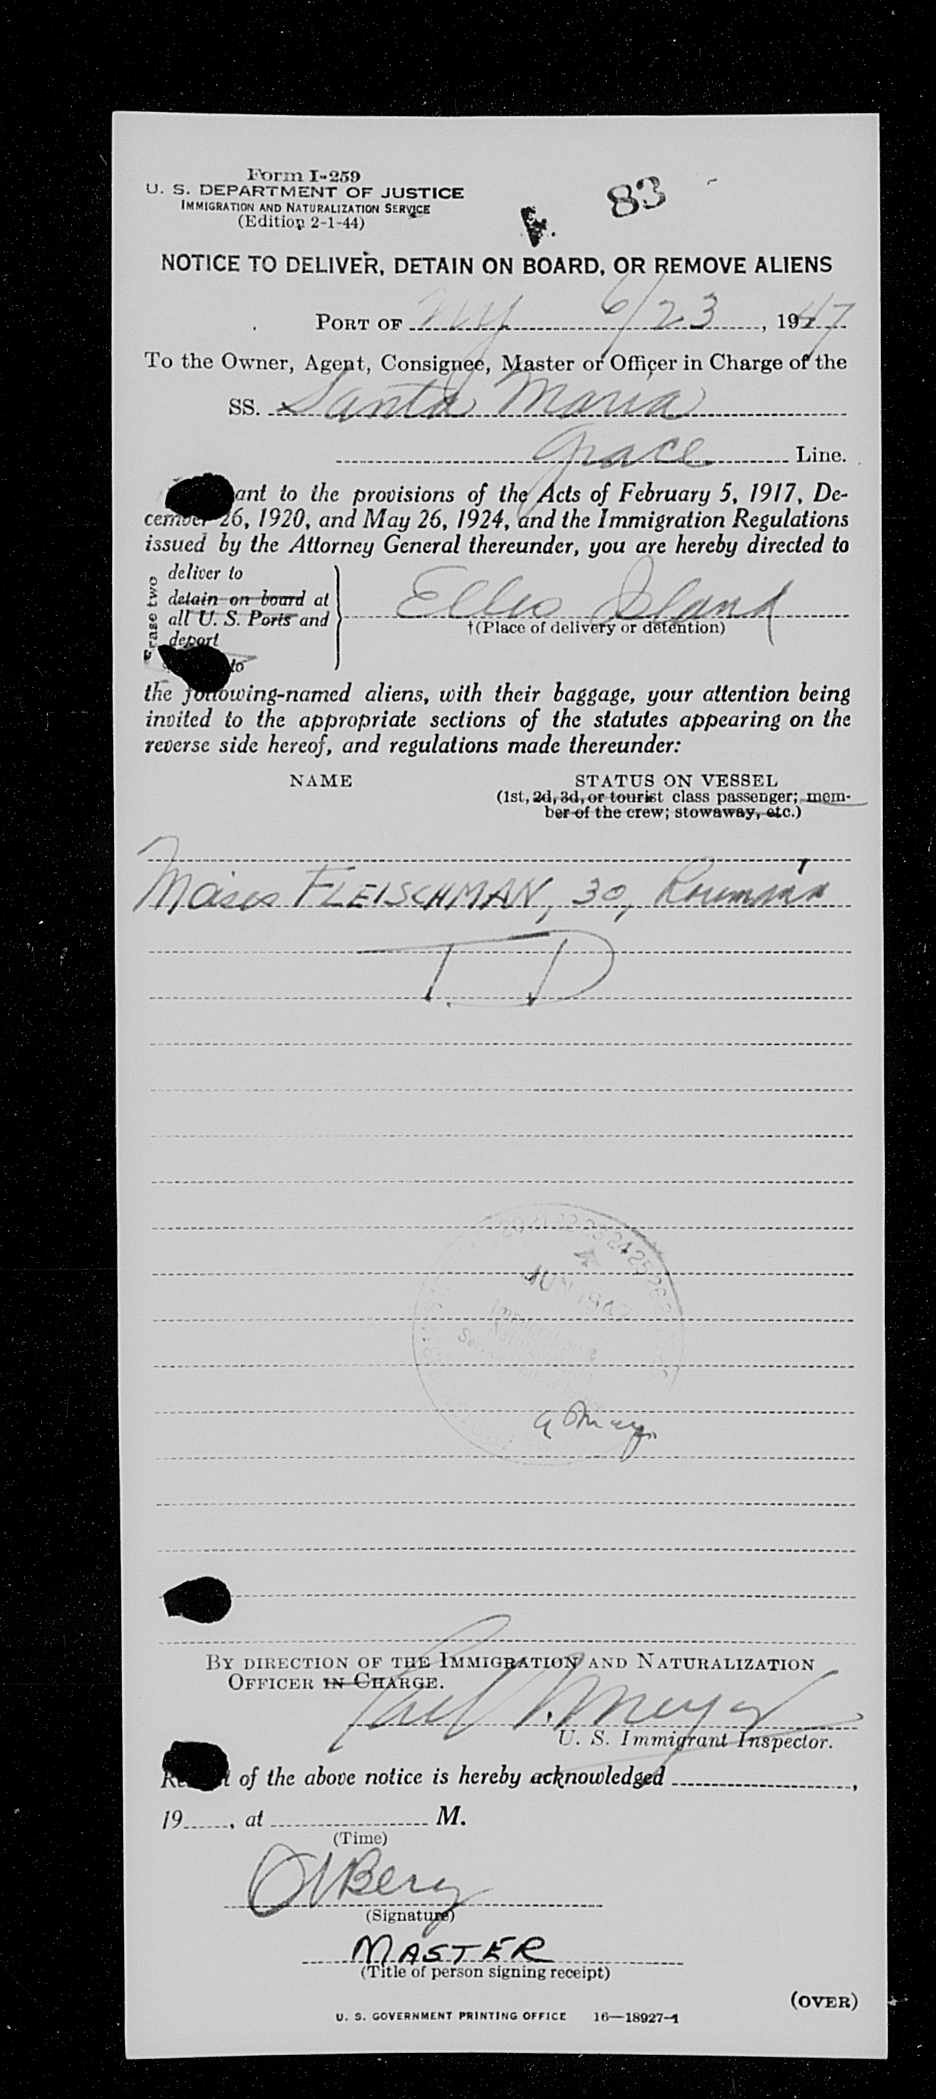 Form I-259
U. S. DEPARTMENT OF JUSTICE
IMMIGRATION AND NATURALIZATION SERVICE
(Edition 2-1-44)
83
NOTICE TO DELIVER, DETAIN ON BOARD, OR REMOVE ALIENS
PORT OF NY 6/23, 1947
To the Owner, Agent, Consignee, Master or Officer in Charge of the
SS. Santa Maria
Grace Line.
ant to the provisions of the Acts of February 5, 1917, De-
cember 26, 1920, and May 26, 1924, and the Immigration Regulations
issued by the Attorney General thereunder, you are hereby directed to
deliver to
detain on board at
all U. S. Ports and
deport
to
Erase two
Ellis Island
†(Place of delivery or detention)
the following-named aliens, with their baggage, your attention being
invited to the appropriate sections of the statutes appearing on the
reverse side hereof, and regulations made thereunder:
NAME STATUS ON VESSEL
(1st, 2d, 3d, or tourist class passenger; mem-
ber of the crew; stowaway, etc.)
Moises FLEISCHMAN, 30, Roumania
T. D
JUN 1947
BY DIRECTION OF THE IMMIGRATION AND NATURALIZATION
OFFICER IN CHARGE.
Meyer
U. S. Immigrant Inspector.
of the above notice is hereby acknowledged ,
19 , at M.
(Time)
Berg
(Signature)
MASTER
(Title of person signing receipt)
(OVER)
U. S. GOVERNMENT PRINTING OFFICE 16—18927-1